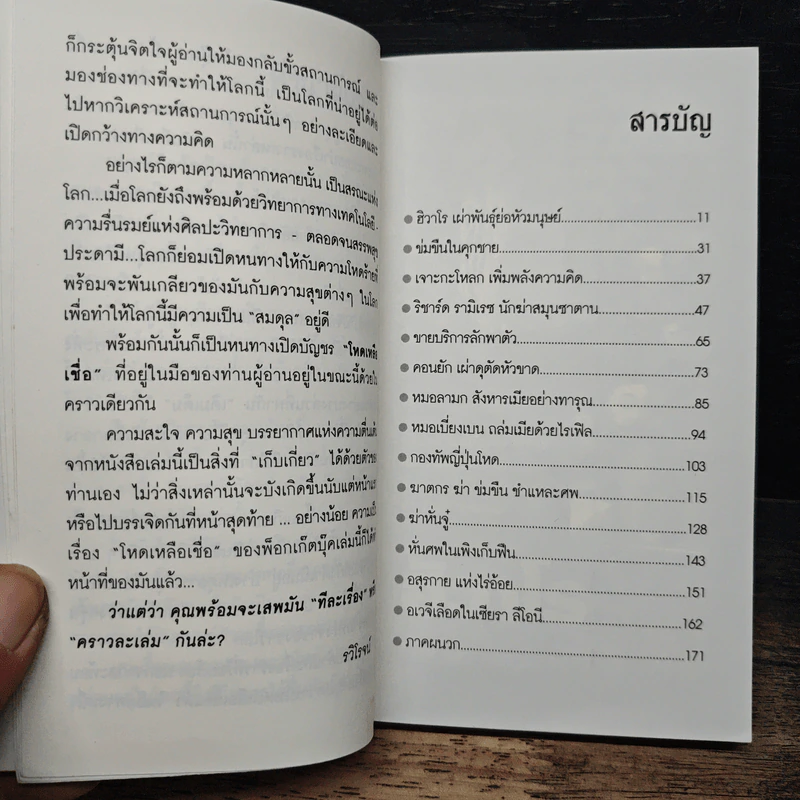 ก็กระตุ้นจิตใจผู้อ่านให้มองกลับขั้วสถานการณ์ และ
มองช่องทางที่จะทำให้โลกนี้ เป็นโลกที่น่าอยู่ได้ต่อ
ไปหากวิเคราะห์สถานการณ์นั้นๆ อย่างละเอียดและ
เปิดกว้างทางความคิด
อย่างไรก็ตามความหลากหลายนั้น เป็นสรณะแห่ง
โลก...เมื่อโลกยังถึงพร้อมด้วยวิทยาการทางเทคโนโลยี -
ความรื่นรมย์แห่งศิลปะวิทยาการ - ตลอดจนสรรพสุข
ประดามี...โลกก็ย่อมเปิดหนทางให้กับความโหดร้ายที่
พร้อมจะพันเกลียวของมันกับความสุขต่างๆ ในโลก
เพื่อทำให้โลกนี้มีความเป็น "สมดุล" อยู่ดี
พร้อมกันนั้นก็เป็นหนทางเปิดบัญชร "โหดเหลือ
เชื่อ" ที่อยู่ในมือของท่านผู้อ่านอยู่ในขณะนี้ด้วยใน
คราวเดียวกัน
ความสะใจ ความสุข บรรยากาศแห่งความตื่นเต้น
จากหนังสือเล่มนี้เป็นสิ่งที่ "เก็บเกี่ยว" ได้ด้วยตัวของ
ท่านเอง ไม่ว่าสิ่งเหล่านั้นจะบังเกิดขึ้นนับแต่หน้าแรก
หรือไปบรรเจิดกันที่หน้าสุดท้าย ... อย่างน้อย ความเป็น
เรื่อง "โหดเหลือเชื่อ" ของพ็อกเก็ตบุ๊คเล่มนี้ก็ได้ทำ
หน้าที่ของมันแล้ว...
ว่าแต่ว่า คุณพร้อมจะเสพมัน "ทีละเรื่อง" หรือ
"คราวละเล่ม" กันล่ะ?
รวิโรจน์
สารบัญ
ฮิวาโร เผ่าพันธุ์ย่อหัวมนุษย์ 11
ข่มขืนในคุกชาย 31
เจาะกะโหลก เพิ่มพลังความคิด 37
ริชาร์ด รามิเรซ นักฆ่าสมุนซาตาน 47
ขายบริการลักพาตัว 65
คอนยัก เผ่าดุตัดหัวขาด 73
หมอลามก สังหารเมียอย่างทารุณ 85
หมอเบี่ยงเบน ถล่มเมียด้วยไรเฟิล 94
กองทัพญี่ปุ่นโหด 103
ฆาตกร ฆ่า ข่มขืน ชำแหละศพ 115
ฆ่าหั่นจู๋ 128
หั่นศพในเพิงเก็บฟืน 143
อสุรกาย แห่งไร่อ้อย 151
อเวจีเลือดในเซียรา ลีโอนี 162
ภาคผนวก 171